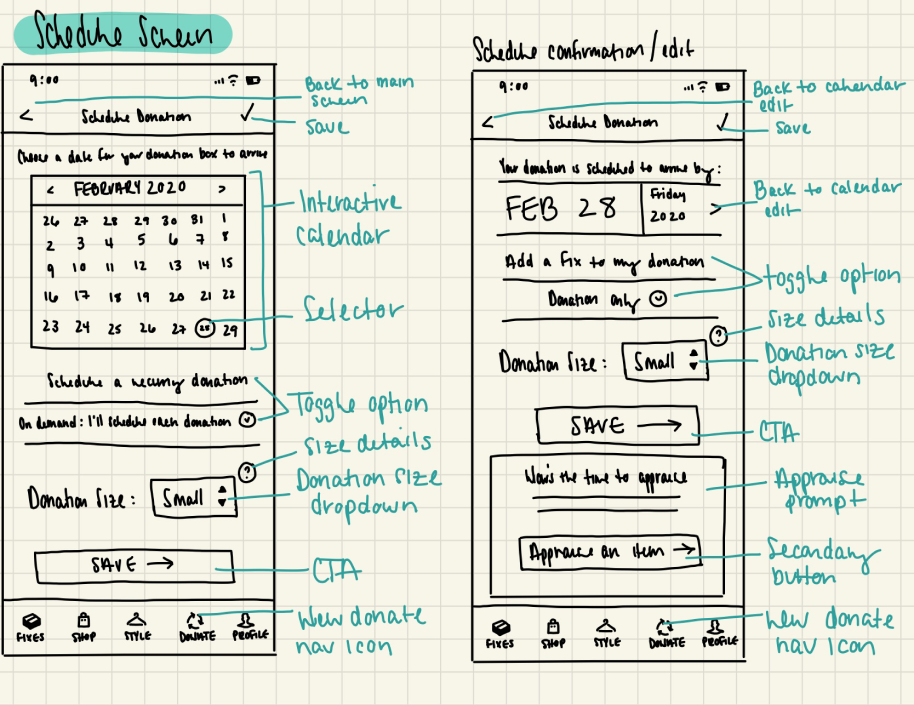 Schedule Screen
9:00
< Schedule Donation ✓
Choose a date for your donation box to arrive
< FEBRUARY 2020 >
26 27 28 29 30 31 1
2 3 4 5 6 7 8
9 10 11 12 13 14 15
16 17 18 19 20 21 22
23 24 25 26 27 28 29
Schedule a recurring donation
On demand: I'll schedule each donation
?
Donation Size: Small
SAVE →
FIXES SHOP STYLE DONATE PROFILE
Back to main
screen
save
Interactive
calendar
Selector
Toggle option
Size details
Donation size
dropdown
CTA
New donate
nav icon
Schedule confirmation/edit
9:00
< Schedule Donation ✓
Your donation is scheduled to arrive by:
FEB 28 Friday
2020 >
Add a Fix to my donation
Donation only
?
Donation Size: Small
SAVE →
Now's the time to appraise
Appraise an item →
FIXES SHOP STYLE DONATE PROFILE
Back to calendar
edit
save
Back to calendar
edit
toggle option
Size details
Donation size
dropdown
CTA
Appraise
prompt
Secondary
button
New donate
nav icon